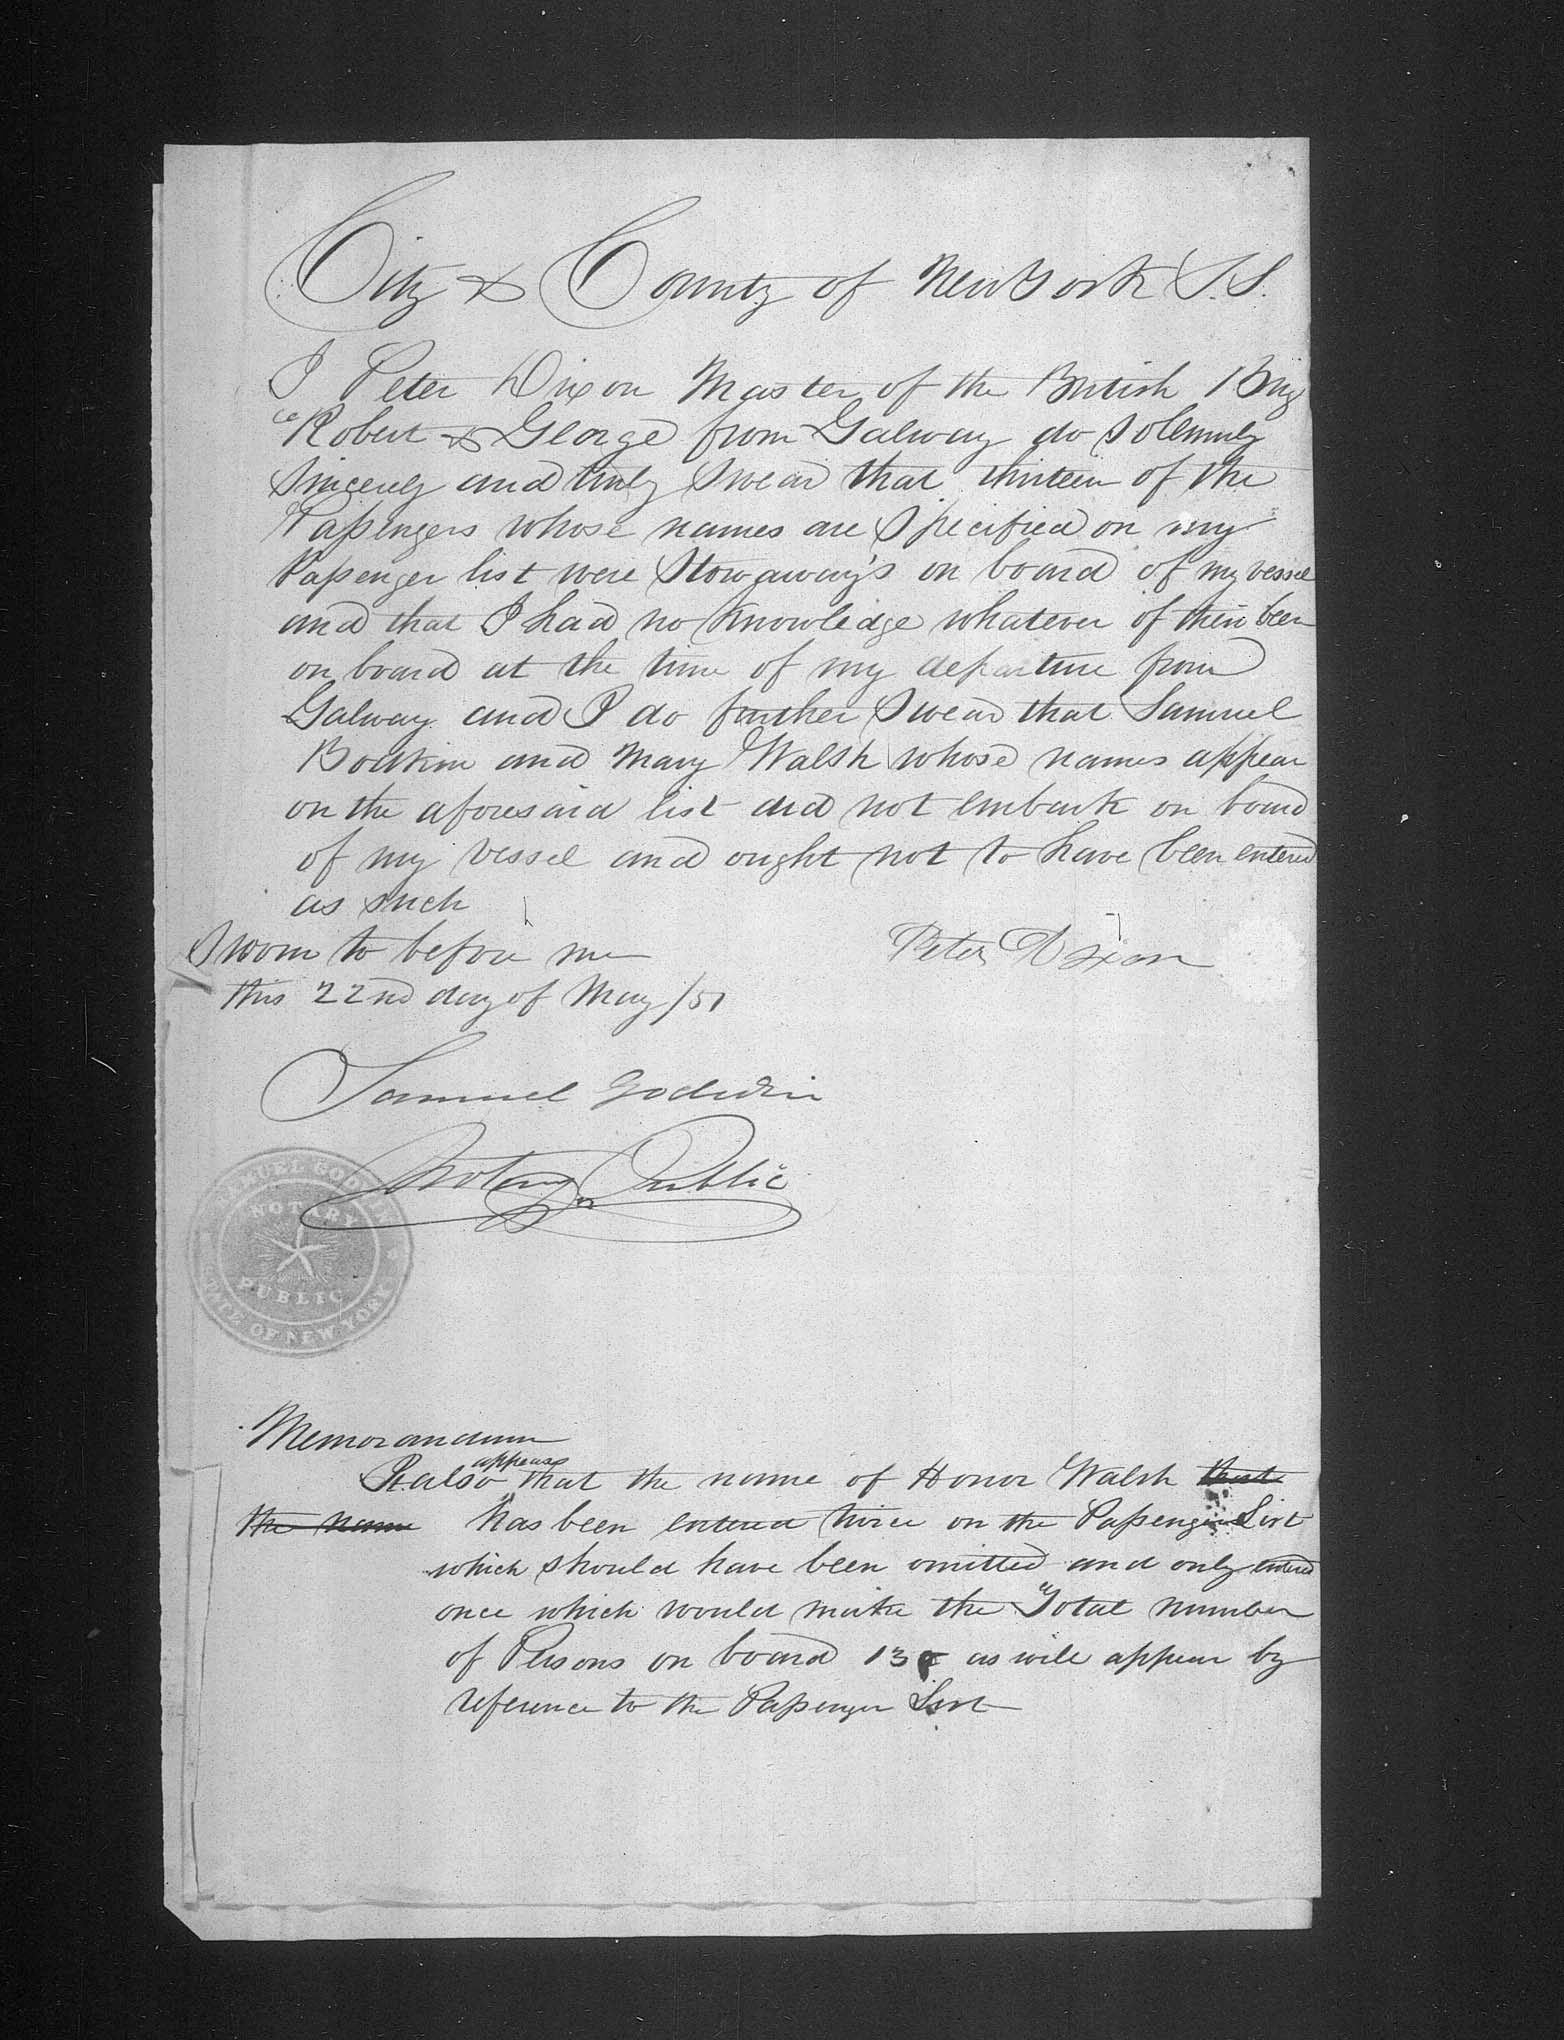 City & County of New York S.S.
I Peter Dixon Master of the British Brig
"Robert & George from Galway do solemnly
sincerely and truly swear that thirteen of the
Passengers whose names are specified on my
Passenger list were Stowaway's on board of my vessel
and that I had no knowledge whatever of their been
on board at the time of my departure from
Galway and I do further swear that Samuel
Bodkin and Mary Walsh whose names appear
on the aforesaid list did not embark on board
of my vessel and ought not to have been entered
as such
Sworn to before me
Peter Dixon
this 22nd day of May /51
Samuel Godwin
Notary Public
SAMUEL GODWIN
NOTARY
PUBLIC
STATE OF NEW YORK
Memorandum
appears
It also that the name of Honor Walsh that
the name has been entered twice on the Passenger List
which should have been omitted and only entered
once which would make the Total number
of Persons on board 13 as will appear by
reference to the Passenger List